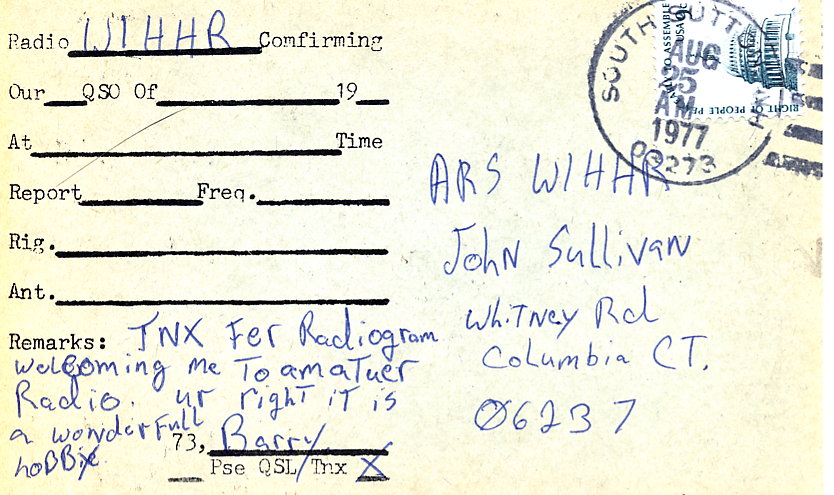 Radio W1HHR Comfirming
Our QSO Of 19
At Time
Report Freq.
Rig.
Ant.
Remarks: TNX Fer Radiogram
welcoming me To amaTuer
Radio. ur righT iT is
a wonderfull
hoBBie
73, Barry
Pse QSL/Tnx X
SOUTH SUTTON
AUG
25
AM
1977
03273
USA 9c
RIGHT OF PEOPLE
TO ASSEMBLE
ARS W1HHR
John Sullivan
WhiTNey Rd
Columbia CT.
06237